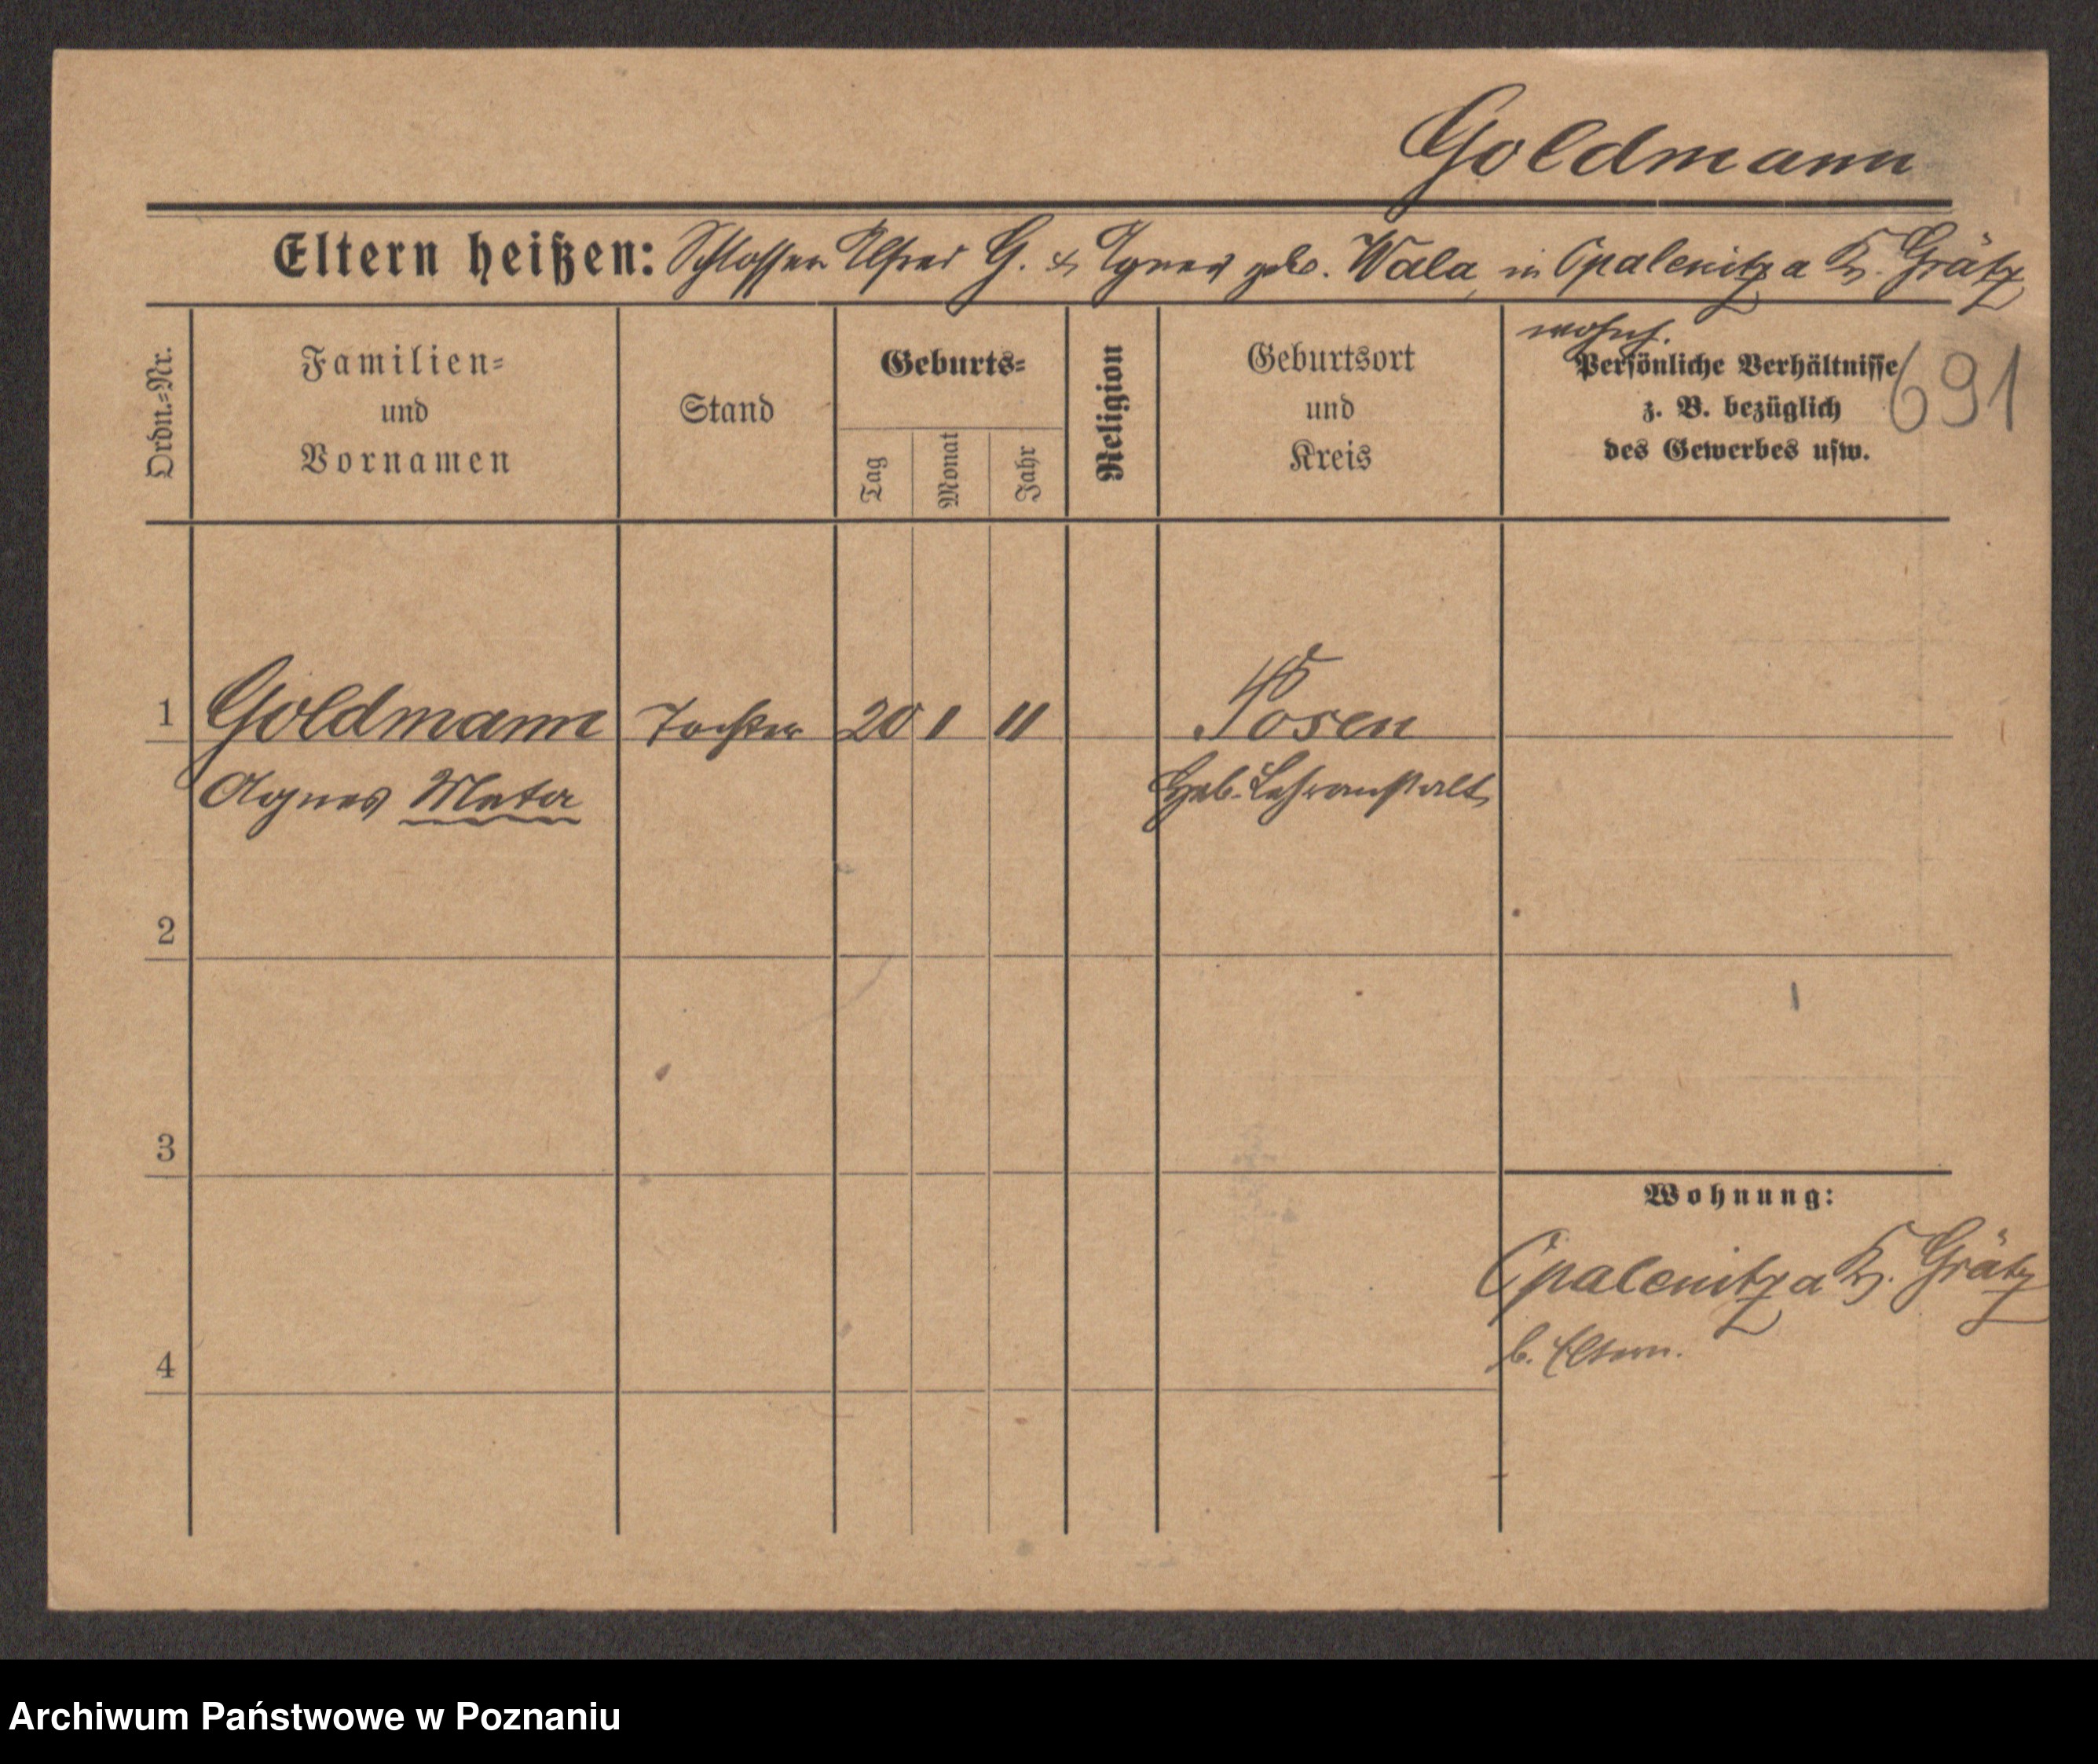 Goldmann
Eltern heißen: Schlosser Alfred G. & Agnes geb. Wala in Opalenitza Kr. Grätz
wohnh.
Ordn.=Nr.
Familien=
und
Vornamen
Stand
Geburts=
Tag
Monat
Jahr
Religion
Geburtsort
und
Kreis
Persönliche Verhältnisse
z. B. bezüglich
des Gewerbes usw.
691
1 Goldmann Tochter 20 1 11 Posen
Agnes Meta Heb. Lehranstalt
2
3
Wohnung:
Opalenitza Kr. Grätz
b. Eltern.
4
Archiwum Państwowe w Poznaniu